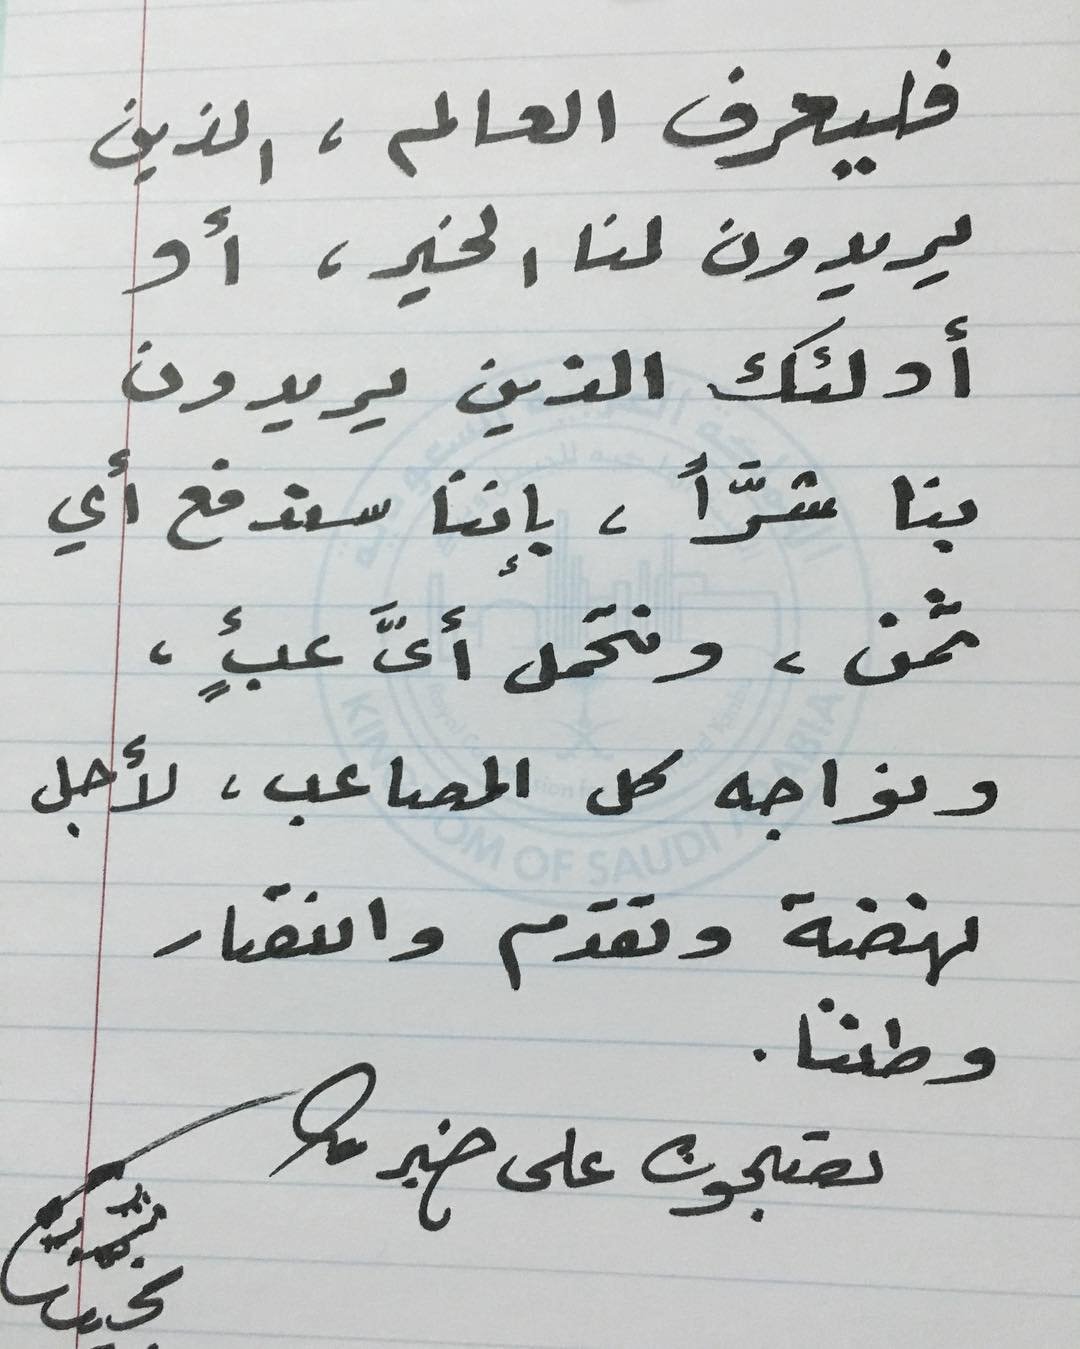 فليعرف العالم ، الذين
يريدون لنا الخير ، أو
أولئك الذين يريدون
بنا شرَّاً ، بإننا سندفع أي
ثمن ، ونتحمل أىَّ عبٍأ ،
ونواجه كل المصاعب ، لأجل
نهضة وتقدم وانتصار
وطننا .
تصبحون على خير
KINGDOM OF SAUDI ARABIA